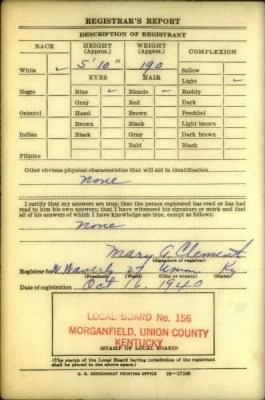 REGISTRAR'S REPORT
DESCRIPTION OF REGISTRANT
RACE HEIGHT (Approx.) WEIGHT (Approx.) COMPLEXION
5' 10" 190 Sallow
White ✓ EYES HAIR Light ✓
Negro Blue ✓ Blonde ✓ Ruddy
Gray Red Dark
Oriental Hazel Brown Freckled
Brown Black Light brown
Indian Black Gray Dark brown
Bald Black
Filipino
Other obvious physical characteristics that will aid in identification
None
I certify that my answers are true; that the person registered has read or has had
read to him his own answers; that I have witnessed his signature or mark and that
all of his answers of which I have knowledge are true, except as follows:
None
Mary A. Clements
(Signature of registrar)
Registrar for W. Waverly 27 Union Ky
(Precinct) (Ward) (City or county) (State)
Date of registration Oct 16, 1940
LOCAL BOARD No. 156
MORGANFIELD, UNION COUNTY
KENTUCKY
(STAMP OF LOCAL BOARD)
(The stamp of the Local Board having jurisdiction of the registrant
shall be placed in the above space.)
U. S. GOVERNMENT PRINTING OFFICE